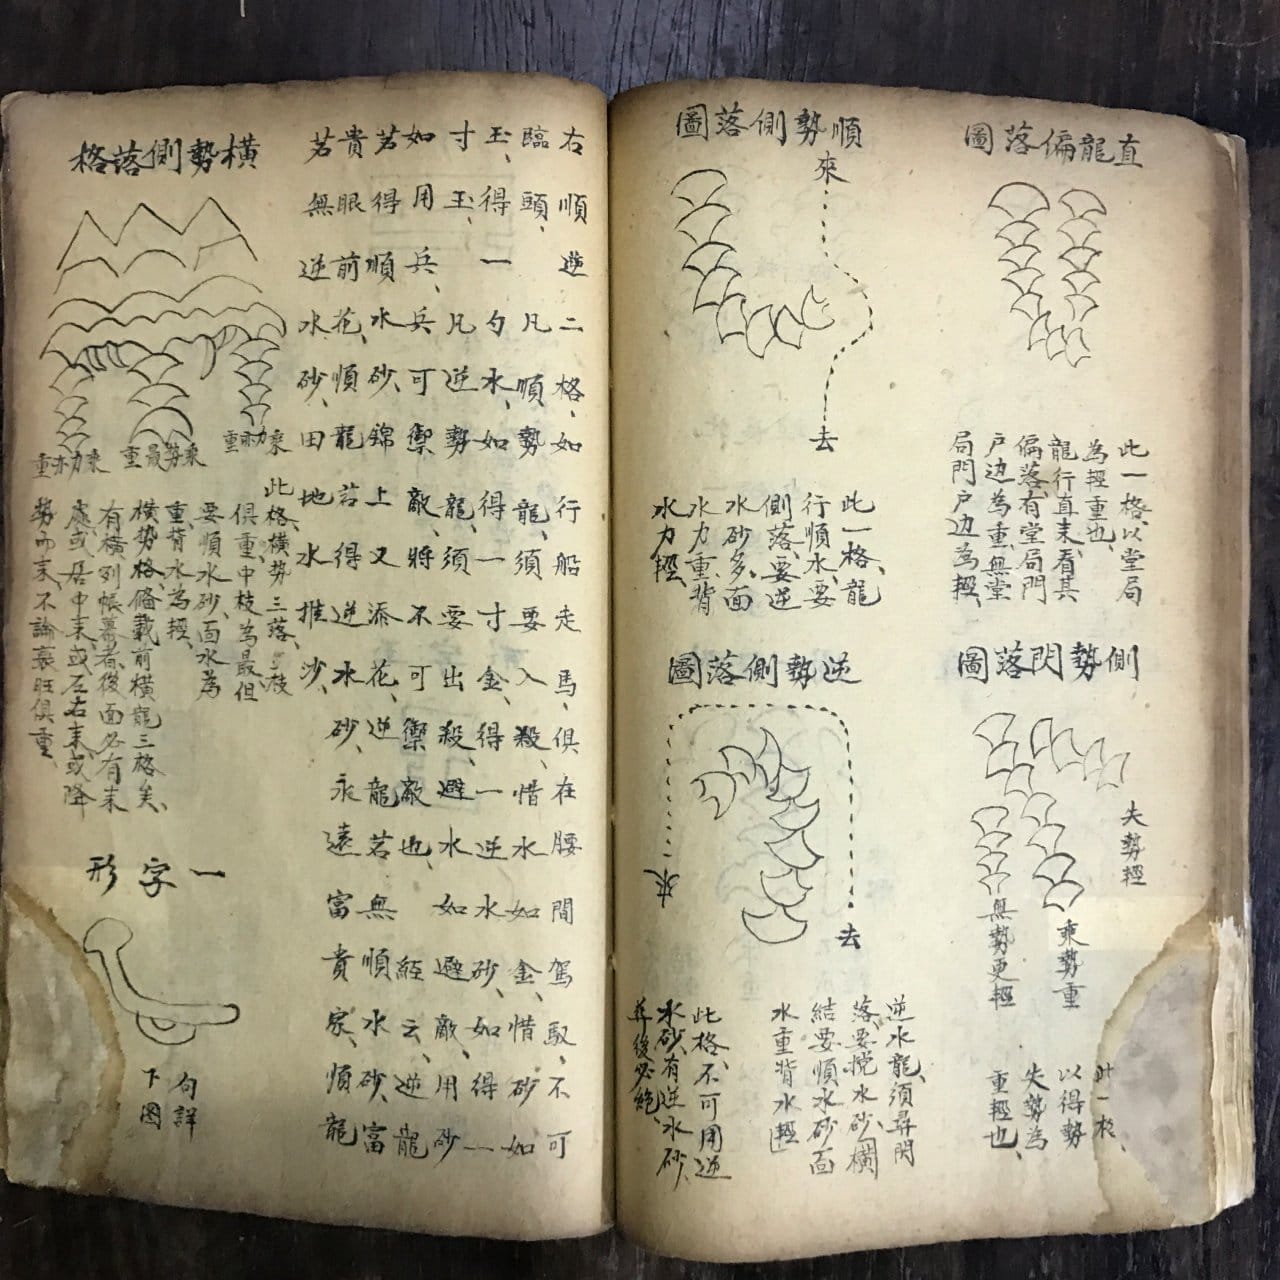 直龍偏落圖
此一格、以堂局
為輕重也、
龍行直来、看其
偏落、有堂局門
戸边為重、無堂
局門戸边為輕、
側勢閃落圖
失勢輕
乘勢重
無勢更輕
此一格、
以得勢
失勢為
重輕也、
順勢側落圖
來
去
此一格、龍
行順水、要
側落、要逆
水砂多、面
水力重、背
水力輕、
逆勢側落圖
來
去
逆水龍、須尋閃
落、要挽水砂、橫
結要順水砂面
水重背水輕
此格、不可用逆
水砂、有逆水砂、
葬後必絶、
右順逆二格、如行船走馬、俱在腰間駕馭、不可
臨頭、凡順勢龍、須要入殺、惜水如金、惜砂如
玉、得一勺水、如得一寸金、得一逆水砂、如得一
寸玉、凡逆勢龍、須要出殺、避水如避敵、用砂
如用兵、兵可禦敵、將不可禦敵也、經云、逆龍
若得順水砂、錦上又添花、逆龍若無順水砂、富
貴眼前花、順龍若得逆水砂、永遠富貴家、順龍
若無逆水砂、田地水推沙、
橫勢側落格
乘力亦重
乘勢最重
乘力亦重
此格、橫勢三落、三枝
俱重、中枝為最、但
要順水砂、面水為
重、背水為輕、
橫勢格、俻載前橫龍三格矣、
有橫列帳幕者、後面必有来
處、或居中来、或左右来、或降
勢而来、不論衰旺俱重、
一字形
句詳
下图